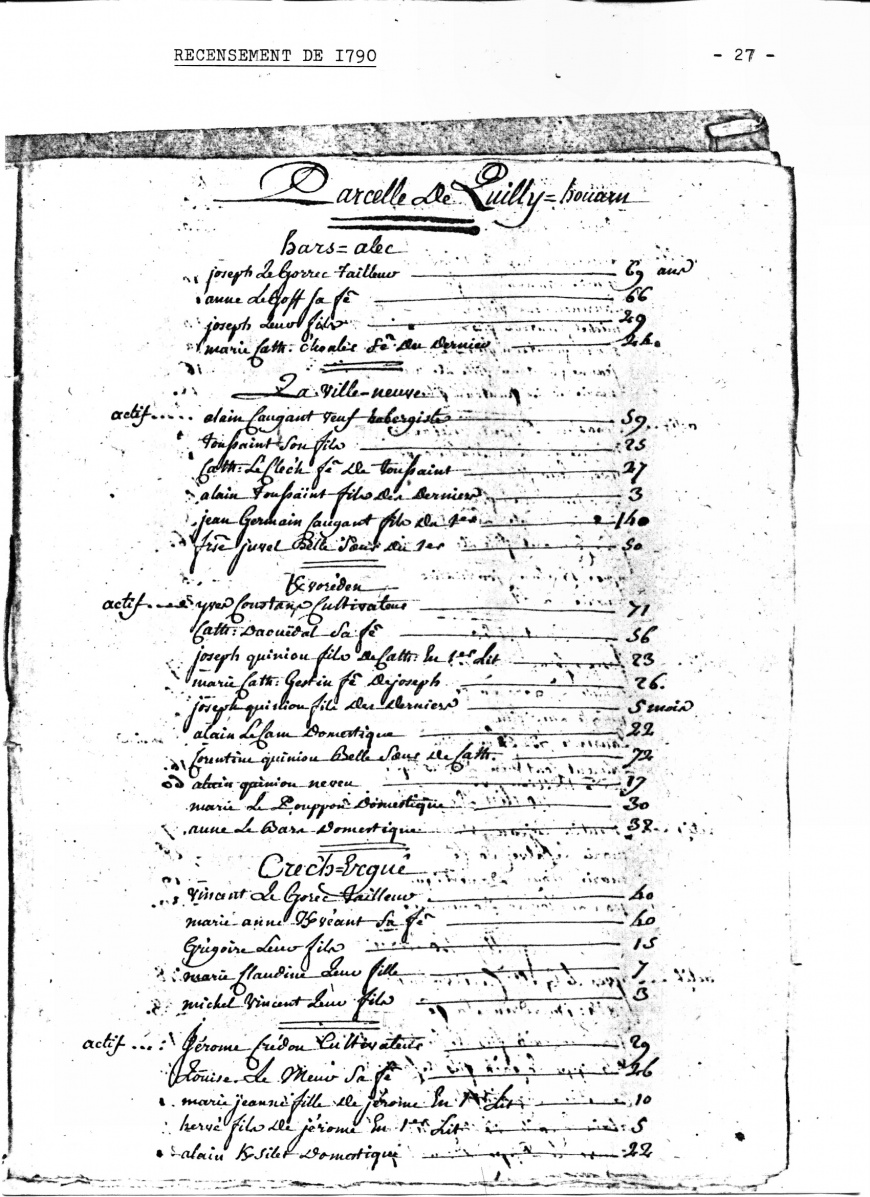 RECENSEMENT DE 1790 - 27 -
Parcelle De Quilly=houarn
hars=alec
joseph LeGorrec tailleur 69 ans
anne LeGoff sa fe 66
joseph leur fils 29
marie Cath: fe Du Dernier 24.
La ville-neuve
actif alain Caugant veuf hobergiste 59
toussaint son fils 25
Cath: LeCloch fe De toussaint 27
alain toussaint fils Des Derniers 3
jean Germain Caugant fils du 1er 40
juvel Belle Sœur Du 1er 50
Kvoréden
actif yves Constans Cultivateur 71
Cath: Daouëdal sa fe 56
joseph quiniou fils De Cath: En 1er Lit 23
marie Cath: Gestin fe De joseph 26.
joseph quiniou fils Des Derniers 5 mois
alain LeCam Domestique 22
Corentine quiniou Belle Sœur De Cath: 72
alain quiniou neveu 17
marie Le Pouppon Domestique 30
anne Le Bars Domestique 38
Crec'h=Ergué
vincent Le Gorec tailleur 40
marie anne Kvéant sa fe 40
Grégoire leur fils 15
marie Claudine leur fille 7
michel vincent leur fils 3
actif jérome Crédou Cultivateur 29
Louise Le Meur sa fe 26
marie jeanne fille De jérome En 1er Lit 10
hervé fils De jérome En 1er Lit 5
alain Ksilet Domestique 22